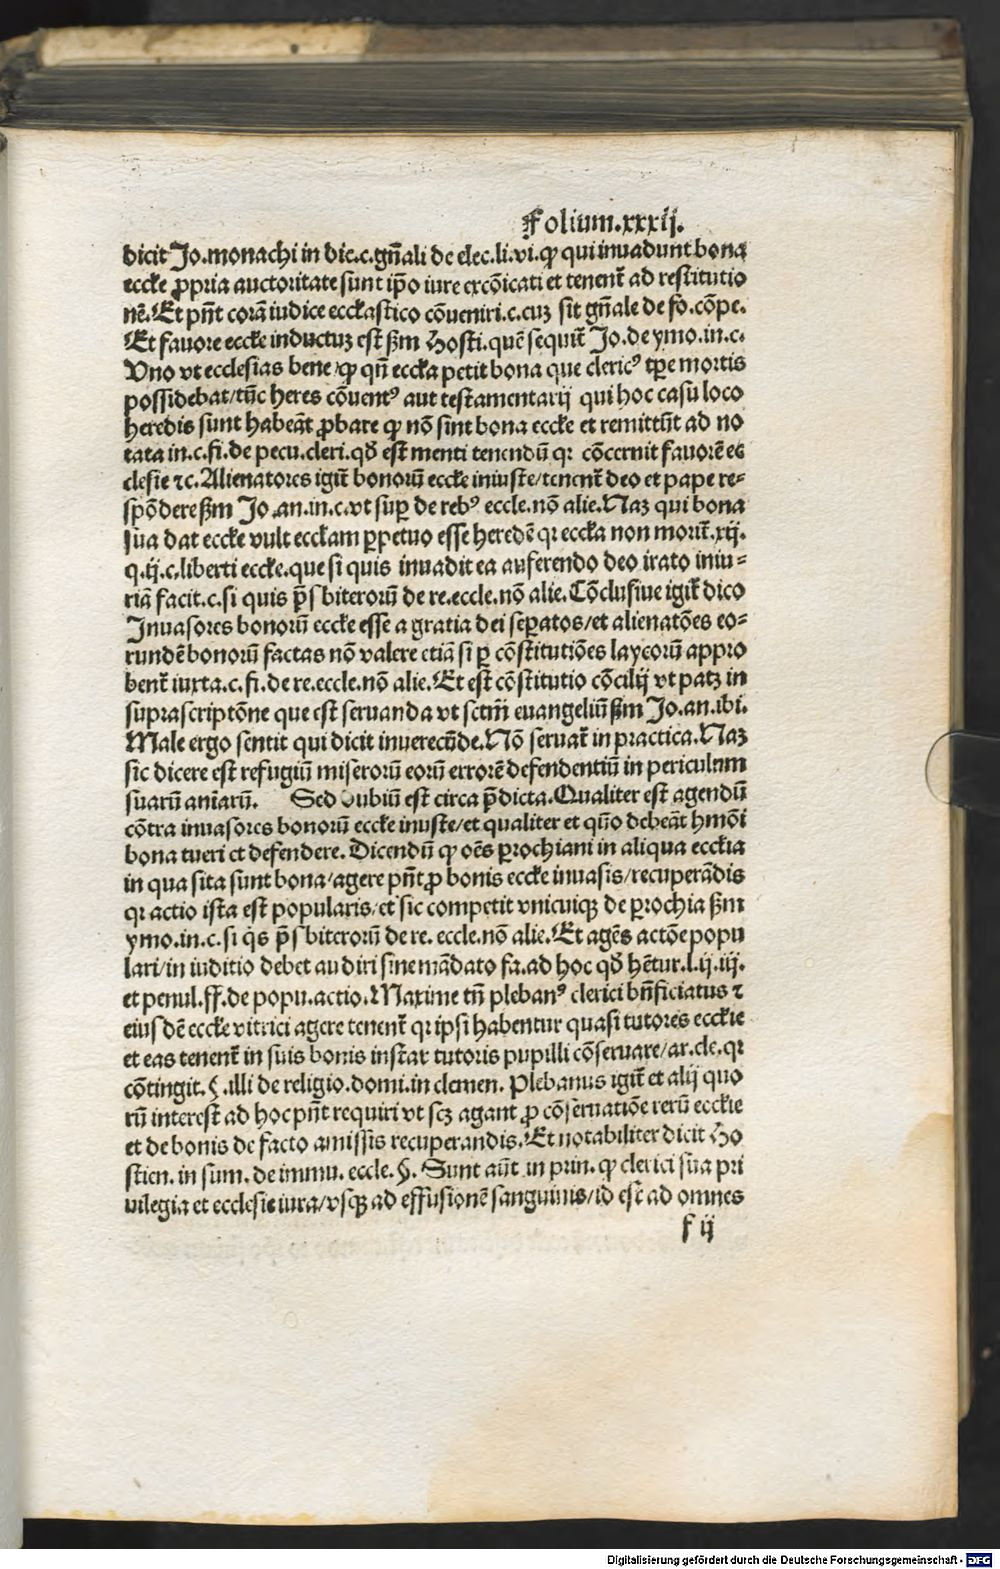 Folium.xxxij.
dicit Jo.monachi in dic.c.gn̄ali de elec.li.vi.ꝙ qui inuadunt bona
eccłe ꝓpria auctoritate sunt ip̄o iure excōicati et tenent̄ ad restitutio
nē.Et pn̄t corā iudice ecclastico cōueniri.c.cuꝫ sit gn̄ale de fo.cōpe.
Et fauore eccłe inductuꝫ est ẜm Hosti.quē sequit̄ Jo.de ymo.in.c.
Uno vt ecclesias bene/ꝙ qn̄ eccła petit bona que clericꝰ tp̄e mortis
possidebat/tūc heres cōuentꝰ aut testamentarij qui hoc casu loco
heredis sunt habeāt ꝓbare ꝙ nō sint bona eccłe et remittūt ad no
tata in.c.fi.de pecu.cleri.qđ est menti tenendū qꝛ cōcernit fauorē ec
clesie ⁊c.Alienatores igit̄ bonorū eccłe iniuste/tenent̄ deo et pape re⸗
spōdere ẜm Jo.an.in.c.vt suꝑ de rebꝰ eccle.nō alie.Naꝫ qui bona
sua dat eccłe vult eccłam ꝑpetuo esse heredē qꝛ eccła non morit̄.xij.
q.ij.c.liberti eccłe.que si quis inuadit ea auferendo deo irato iniu⸗
riā facit.c.si quis p̄sbiterorū de re.eccle.nō alie.Cōclusiue igit̄ dico
Inuasores bonorū eccłe esse a gratia dei seꝑatos/et alienatōes eo⸗
rundē bonorū factas nō valere etiā si ꝑ cōstitutiōes laycorū appro
bent̄ iuxta.c.fi.de re.eccle.nō alie.Et est cōstitutio cōcilij vt patꝫ in
suprascriptōne que est seruanda vt sctm̄ euangeliū ẜm Jo.an.ibi.
Male ergo sentit qui dicit inuerecūde.Nō seruat̄ in practica.Naꝫ
sic dicere est refugiū miserorū eorū errorē defendentiū in periculum
suarū aniarū. Sed dubiū est circa p̄dicta.Qualiter est agendū
cōtra inuasores bonorū eccłe iniuste/et qualiter et quō debeāt hmōi
bona tueri et defendere.Dicendū ꝙ oēs ꝑrochiani in aliqua eccłia
in qua sita sunt bona/agere pn̄t ꝓ bonis eccłe inuasis/recuperādis
qꝛ actio ista est popularis/et sic competit vnicuiqꝫ de ꝑrochia ẜm
ymo.in.c.si q̇s p̄sbiterorū de re. eccle.nō alie.Et agēs actōe popu
lari/in iuditio debet audiri sine mādato fa.ad hoc qđ hētur.l.ij.iij.
et penul.ff.de popu.actio.Maxime tn̄ plebanꝰ clerici bn̄ficiatus ⁊
eiusdē eccłe vitrici agere tenent̄ qꝛ ipsi habentur quasi tutores eccłie
et eas tenent̄ in suis bonis instar tutoris pupilli cōseruare/ar.cle.qꝛ
cōtingit.§.illi de religio.domi.in clemen. Plebanus igit̄ et alij quo
rū interest ad hoc pn̄t requiri vt scꝫ agant ꝓ cōseruatiōe rerū eccłie
et de bonis de facto amissis recuperandis.Et notabiliter dicit Ho
stien. in sum. de immu. eccle.§. Sunt aūt in prin. ꝙ clerici sua pri
uilegia et ecclesie iura/vsqꝫ ad effusionē sanguinis/id est ad omnes
f ij
Digitalisierung gefördert durch die Deutsche Forschungsgemeinschaft - DFG